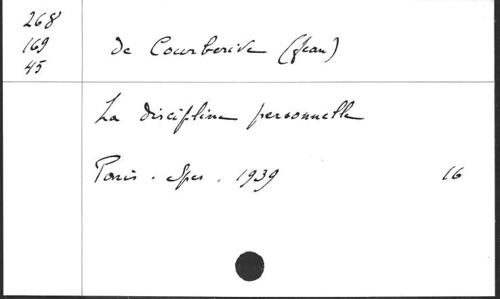 268
169
45
de Courberive (Jean)
La discipline personnelle
Paris. Spes. 1939 16